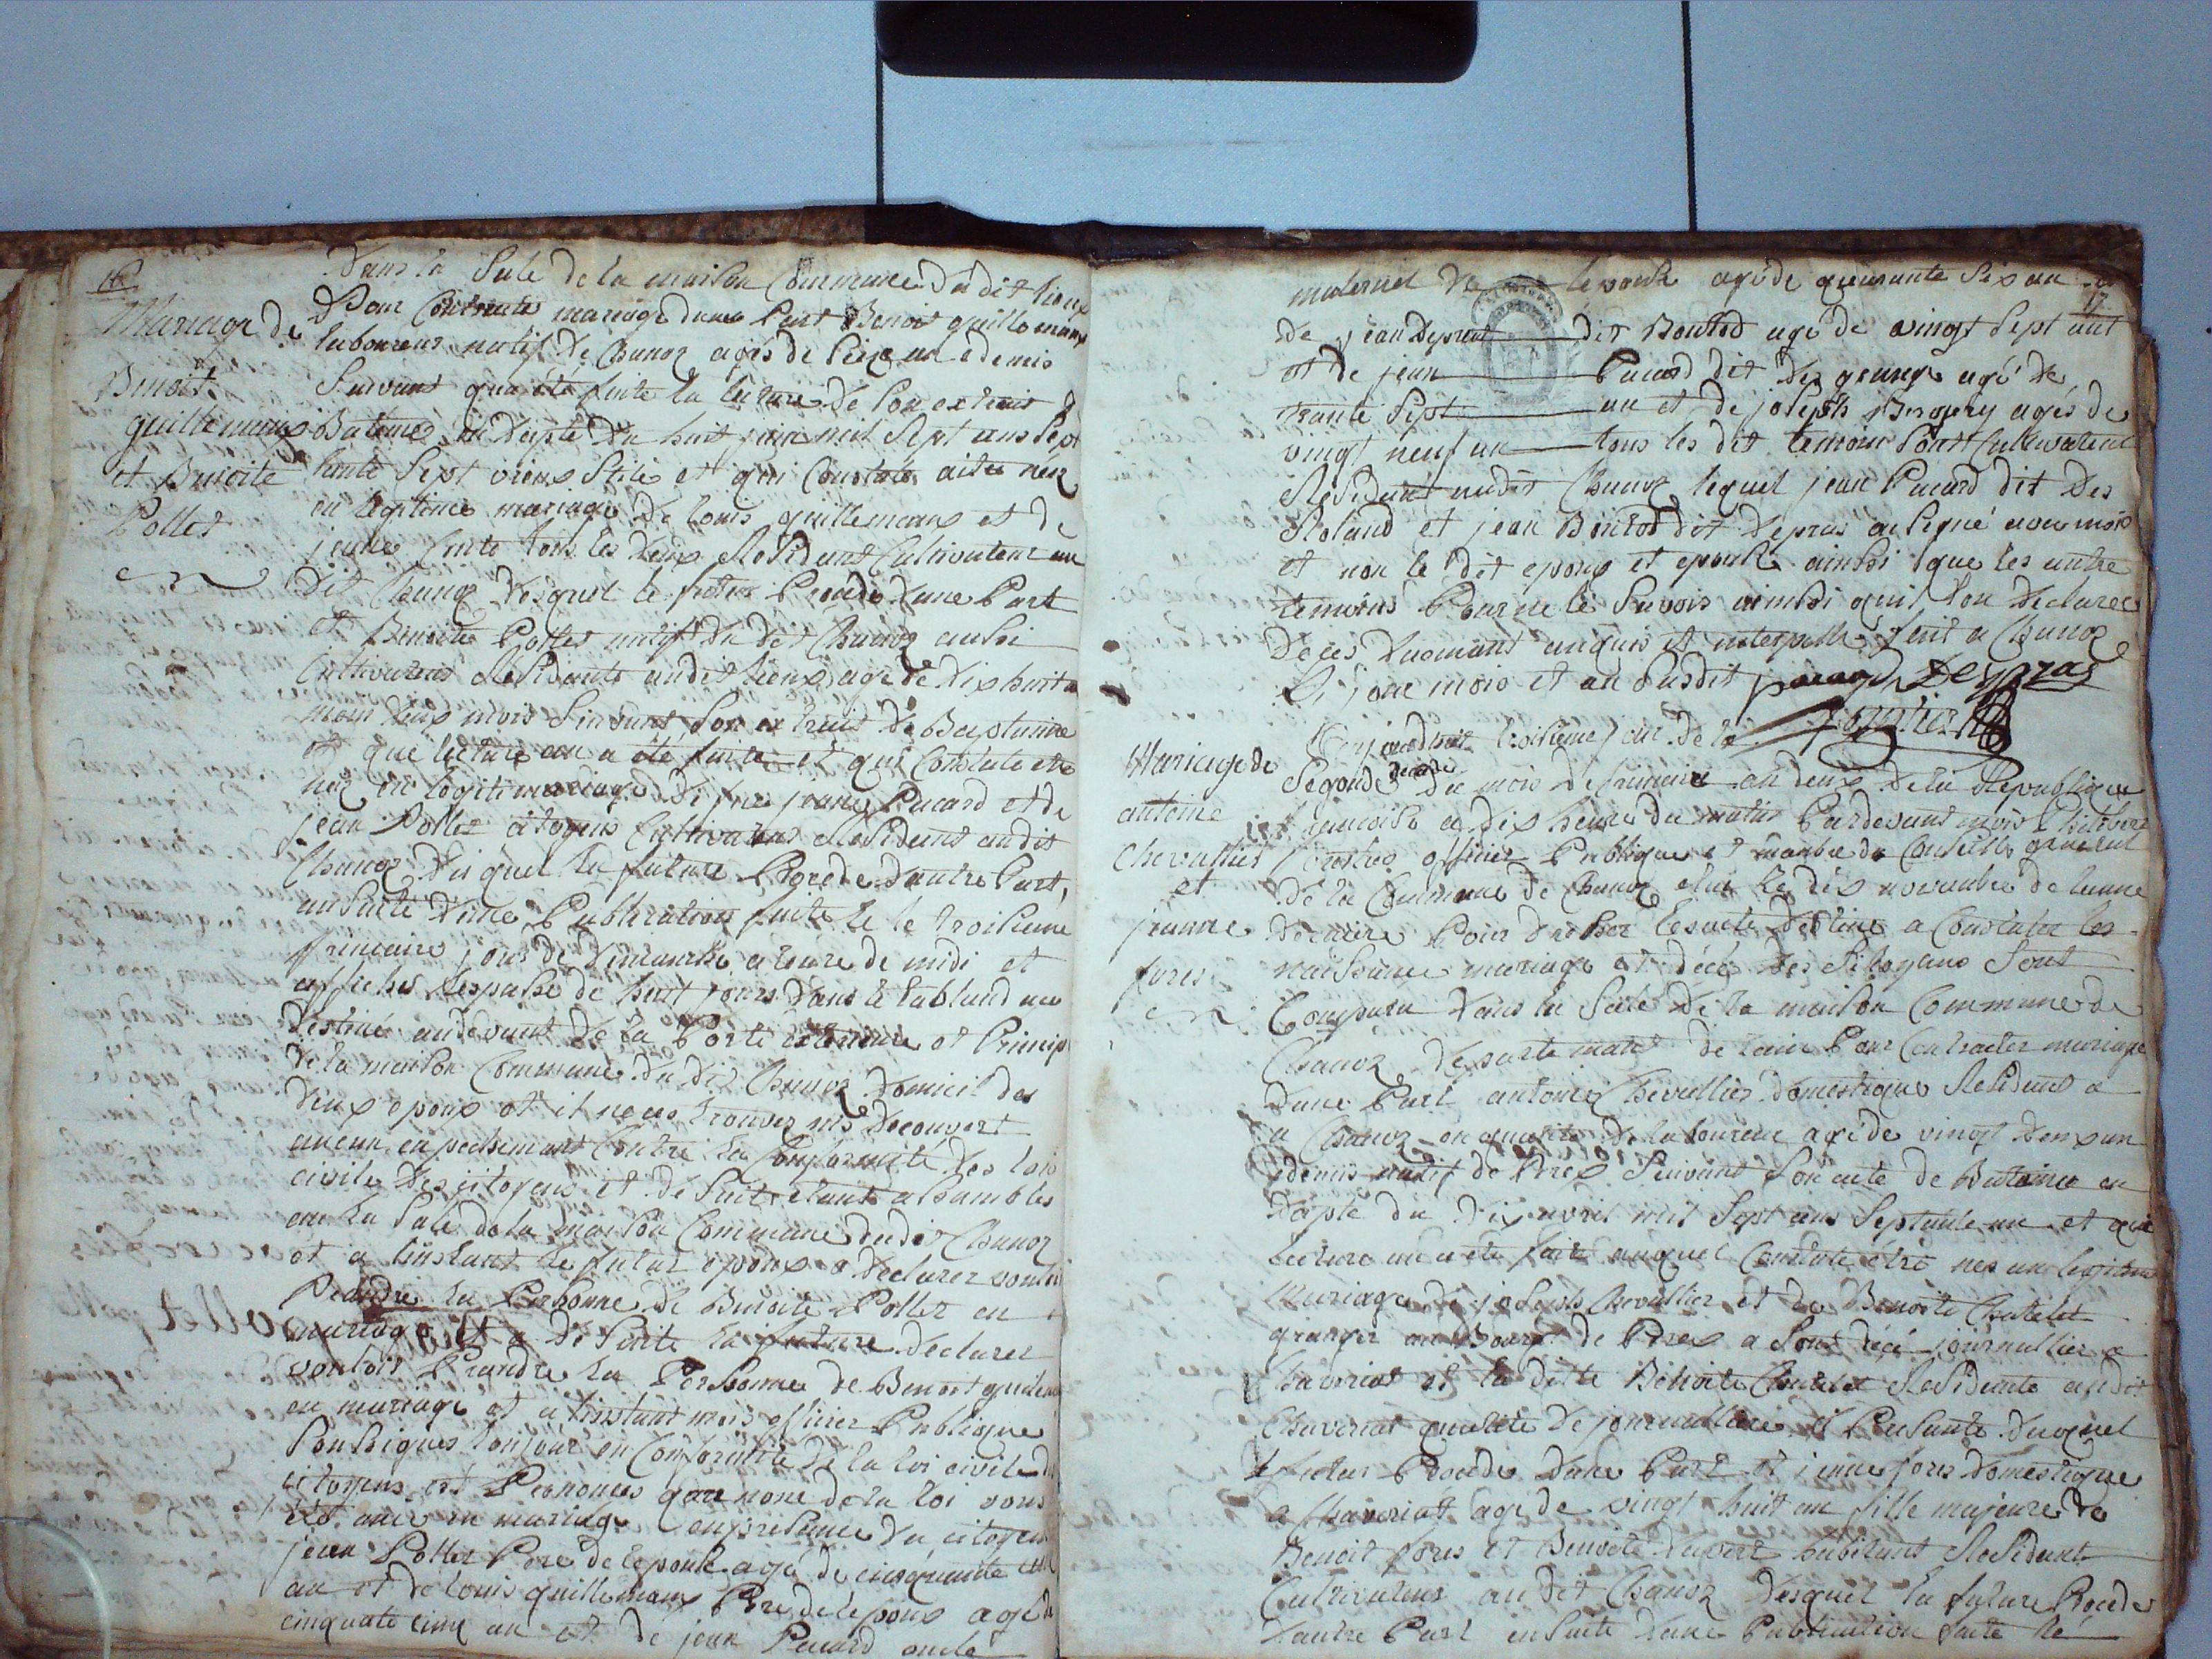 16
Mariage de
Benoit
guillemaux
et Benoite
Pollet
Dans la Sale de la maison Commune dudit lieux
Pour Contracte mariage dune Part Benoit guillemaux
laboureur natif de Chanoz agés de Seize an edemis
Suivant qua été faite la lecture de Son extrait
Batême en Depte du huit juin mil Sept ans Sept
tante Sept vieux Stile et qui Constate aitre nez
en legitime mariage de louis guillemaux et de
jeanne tous les deux Residant Cultivateur au
dit Chanoz desquel le futur Procede dune Part
et Benoite Pollet natif du dit Chanoz aussi
Cultivateur Residante audit lieux agé de dix huit a
moin deux mois Suivant Son extrait de Baptume
et que lecture an a été faite et qui Constate etre
nez en legiti mariage de feue jeanne Pacard et de
jean Pollet citoyens Cultivateur Residant audit
Chanoz desquel la future Procede dautre Part,
ansuite dune Publication faite le le troisieme
frimaire jour de dimanche a leure de midi et
affiches lespasse de huit jours dans le tabland au
destiné audevant de la Porte exterieure et Princip
de la maison Commune du dit Chanoz domicil des
deux epoux et il ne ces trouver nis decouvert
aucun enpechemant Contre la Conformité des lois
civile des citoyens et de Suite etant assambles
en la Sale de la maison Commune dudit Chanoz
et a linstant le futur epoux a declarer vouloi
Prandre la Personne de Benoite Pollet en
mariage et a de Suite la future declarer
vouloir Prandre la Personne de Benoit guillem
en mariage et a linstant mois officier Publique
Soussignes toujour en Conformité de la loi civile d
citoyens est Prononces quau none de la loi vous
ete unis en mariage en presance du citoyen
jean Pollet Pere de lepouse agé de cinquante
an et de louis guillemaux Pere de lepoux agé d
cinquate cinq an et de jean Pacard oncle
17
maternel de lepouse agé de quarante Six an
de jean Depras dit Boulod agé de vingt Sept ant
et de jean Pacard dit des granges agé de
trante Sept an et de joseph Brogery agés de
vingt neuf an tous les dit temoins Sont Cultivateur
Residant audit Chanoz lequel jean Pacard dit Des
Roland et jean Boulod dit depras on Signé avec mois
et non le dit epoux et epouse ainssi que les autre
temoins Pour ne le Savoir ainssi quil lon declarer
de ces duemant anquis et interpellé fait a Chanoz
Ci jour mois et an Susdit pacard Depras
forestier
Mariage de
antoine
Chevallier
et
jeanne
fores
Aujourdhuit troisieme jour de la
Segonde decade du mois de frimaire an deux de la Republique
francoise a dix heure du matin Pardevant mois Philibert
forestier officier Publique et manbre du Conseille general
de la Commune de Chanoz elui le dix novembre de lanne
derniere Pour dresser les acte destine a Constater les
naissance mariage et décé des Sitoyans Sont
Comparu dans la Sale de la maison Commune de
Chanoz departemant de lain Pour Contracter mariage
dune Part antoine Chevallier domestique Residant a
a Chanoz en qualité de laboureur agé de vingt deux an
demis natif de Prex Suivant Son acte de Bateme en
depte du dix avril mil Sept ans Septante un et que
lecture an a été fait auquel Constate étre nez an legitime
Mariage de joseph Chevallier et de Benoite Chatelet
granger au Bourg de Prex a Sont décé journallier a
Chaveriat et la ditte Benoite Chatelet Residante audit
Chaveriat qualité de journalliere et Presante duquel
le futur Procede dune Part et jeanne fores domestique
a Chaveriat age de vingt huit an fille majeure de
Benoit fores et Benoite Duvert habitant Residant
Cultivateur au dit Chanoz desquel la future Procede
dautre Part en Suite dune Publication faite le